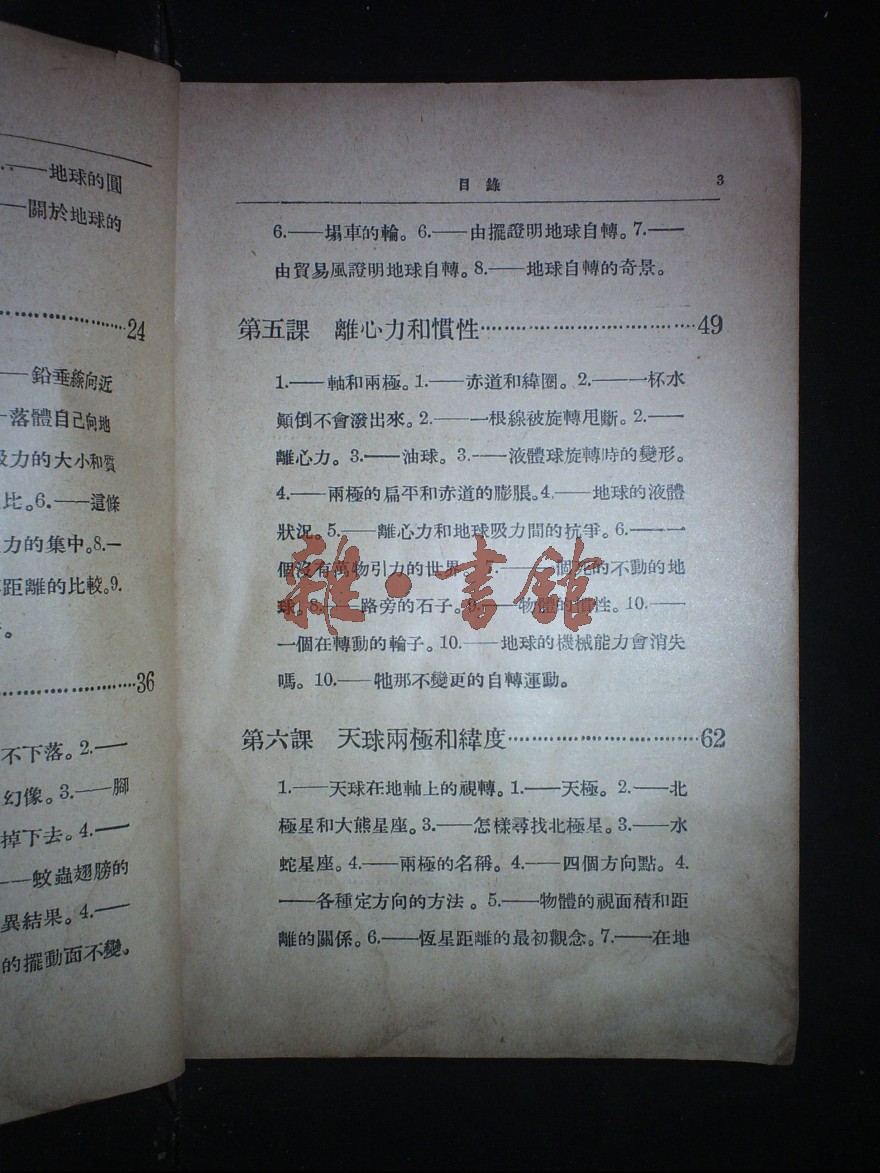 ·——地球的圓
——關於地球的
············24
——鉛垂線向近
落體自己向地
吸力的大小和質
比。6.——這條
力的集中。8.—
距離的比較。9.
。
············36
不下落。2.——
幻像。3.——腳
掉下去。4.——
——蚊蟲翅膀的
異結果。4.——
的擺動面不變。
目錄 3
6.——塌車的輪。6.——由擺證明地球自轉。7.——
由貿易風證明地球自轉。8.——地球自轉的奇景。
第五課 離心力和慣性····························49
1.——軸和兩極。1.——赤道和緯圈。2.——一杯水
顛倒不會潑出來。2.——一根線被旋轉甩斷。2.——
離心力。3.——油球。3.——液體球旋轉時的變形。
4.——兩極的扁平和赤道的膨脹。4.——地球的液體
狀況。5.——離心力和地球吸力間的抗爭。6.——一
個沒有萬物引力的世界。7.——一個死的不動的地
球。8.——路旁的石子。9.——物體的慣性。10.——
一個在轉動的輪子。10.——地球的機械能力會消失
嗎。10.——牠那不變更的自轉運動。
第六課 天球兩極和緯度·························62
1.——天球在地軸上的視轉。1.——天極。2.——北
極星和大熊星座。3.——怎樣尋找北極星。3.——水
蛇星座。4.——兩極的名稱。4.——四個方向點。4.
——各種定方向的方法。5.——物體的視面積和距
離的關係。6.——恆星距離的最初觀念。7.——在地
雜·書館